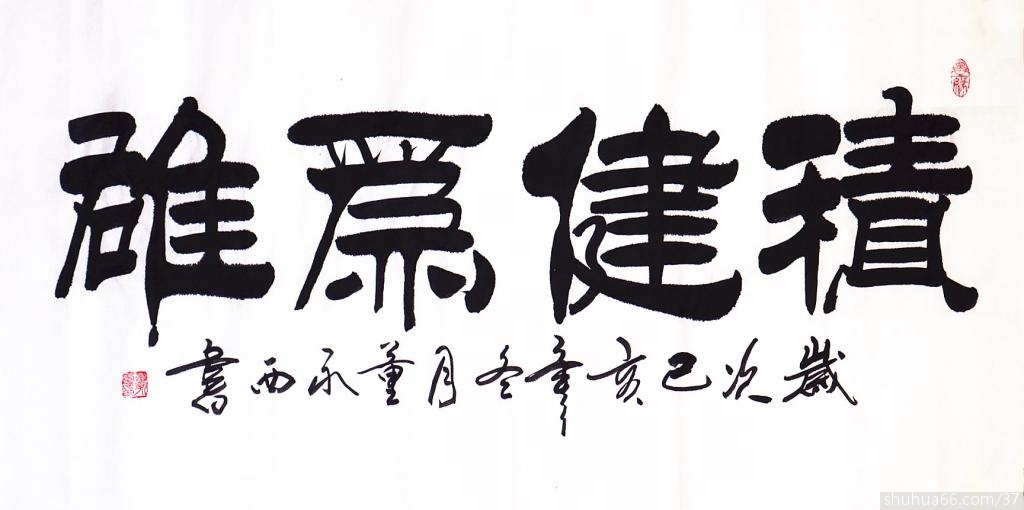 積健為雄
歲次己亥年冬月董永西書
shuhua66.com/37